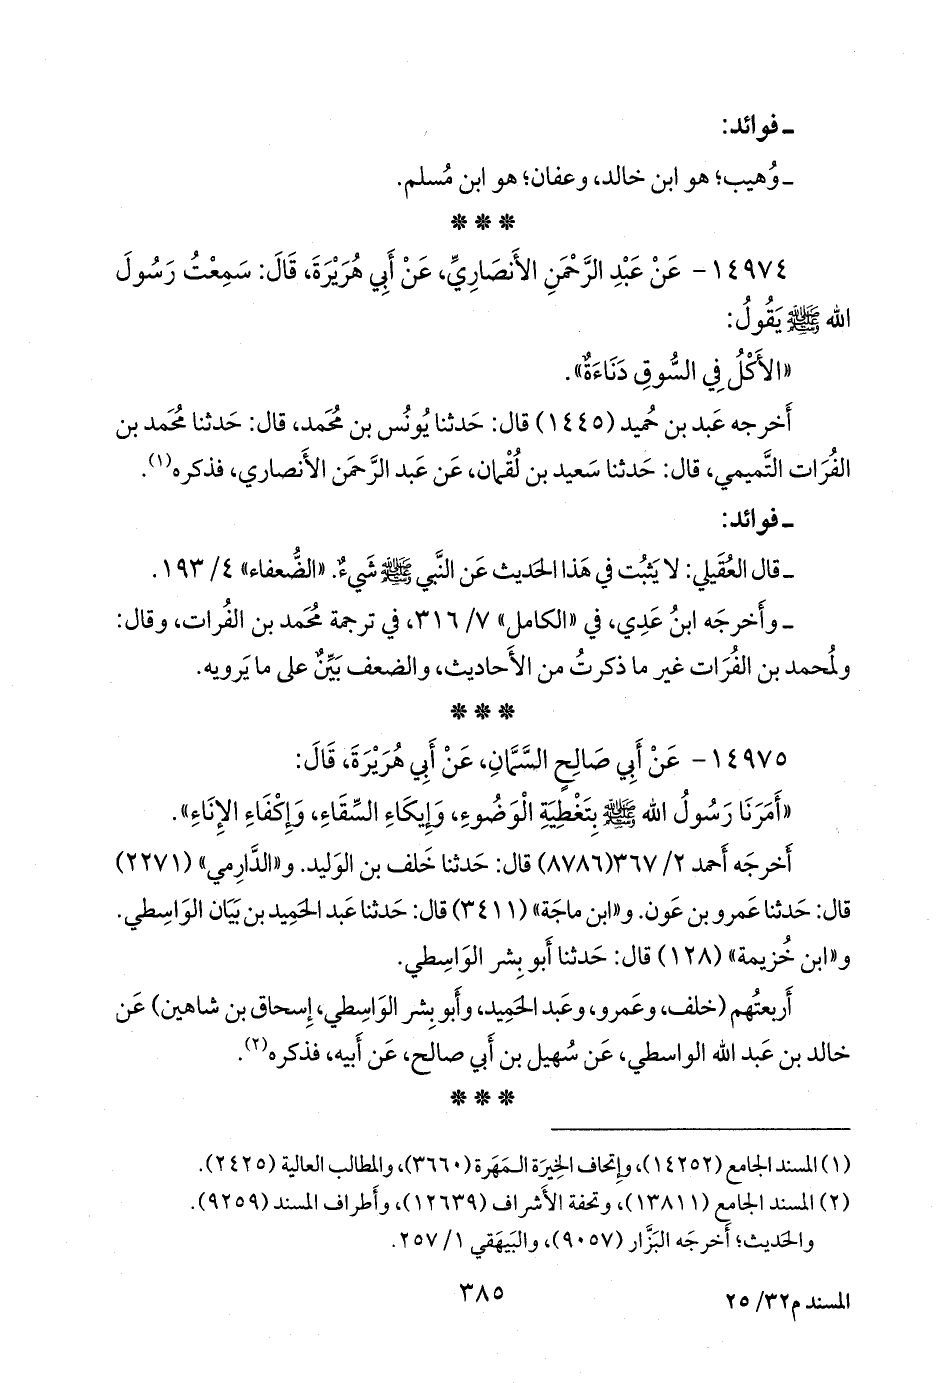 ـ فوائد:
ـ وُهيب؛ هو ابن خالد، وعفان؛ هو ابن مُسلم.
***
١٤٩٧٤- عَنْ عَبْدِ الرَّحْمَنِ الأَنصَارِيِّ، عَنْ أَبِي هُرَيْرَةَ، قَالَ: سَمِعْتُ رَسُولَ
الله ﷺ يَقُولُ:
«الأَكْلُ فِي السُّوقِ دَنَاءَةٌ».
أَخرجه عَبد بن حُميد (١٤٤٥) قال: حَدثنا يُونُس بن مُحَمد، قال: حَدثنا مُحَمد بن
الفُرَات التَّميمي، قال: حَدثنا سَعيد بن لُقْمان، عَن عَبد الرَّحمَن الأَنصاري، فذكره(١).
ـ فوائد:
ـ قال العُقَيلي: لا يَثبُت في هَذا الحَديث عَن النَّبي ﷺ شَيءٌ. «الضُّعفاء» ٤/ ١٩٣.
ـ وأَخرجَه ابنُ عَدِي، في «الكامل» ٧/ ٣١٦، في ترجمة مُحَمد بن الفُرات، وقال:
ولمُحمد بن الفُرَات غير ما ذكرتُ من الأَحاديث، والضعف بَيِّنٌ على ما يَرويه.
***
١٤٩٧٥- عَنْ أَبِي صَالِحٍ السَّمَّانِ، عَنْ أَبِي هُرَيْرَةَ، قَالَ:
«أَمَرَنَا رَسُولُ الله ﷺ بِتَغْطِيَةِ الْوَضُوءِ، وَإِيكَاءِ السِّقَاءِ، وَإِكْفَاءِ الإِنَاءِ».
أَخرجَه أَحمد ٢/ ٣٦٧(٨٧٨٦) قال: حَدثنا خَلف بن الوَليد. و«الدَّارِمي» (٢٢٧١)
قال: حَدثنا عَمرو بن عَون. و«ابن ماجَة» (٣٤١١) قال: حَدثنا عَبد الحَمِيد بن بَيَان الوَاسطي.
و«ابن خُزيمة» (١٢٨) قال: حَدثنا أَبو بِشر الوَاسِطي.
أَربعتُهم (خلف، وعَمرو، وعَبد الحَمِيد، وأَبو بِشر الوَاسِطي، إِسحاق بن شاهين) عَن
خالد بن عَبد الله الواسطي، عَن سُهيل بن أَبي صالح، عَن أَبيه، فذكره(٢).
***
(١) المسند الجامع (١٤٢٥٢)، وإتحاف الخِيرَة الـمَهَرة (٣٦٦٠)، والمطالب العالية (٢٤٢٥).
(٢) المسند الجامع (١٣٨١١)، وتحفة الأشراف (١٢٦٣٩)، وأطراف المسند (٩٢٥٩).
والحَديث؛ أَخرجَه البَزَّار (٩٠٥٧)، والبَيهَقي ١/ ٢٥٧.
٣٨٥
المسند م٣٢/ ٢٥